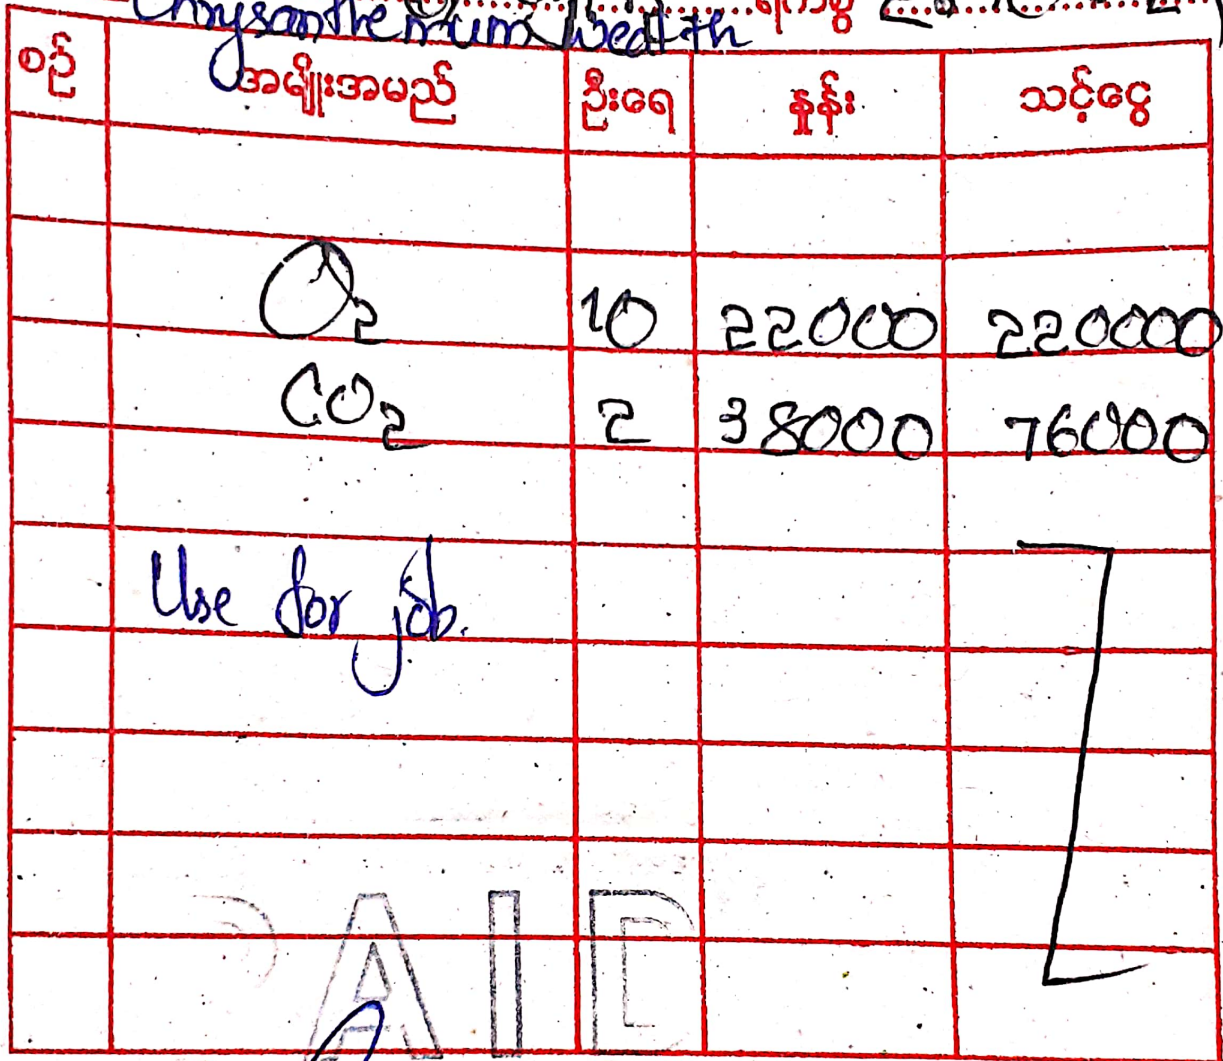 Chrysanthemum Wealth
စဉ် အမျိုးအမည် ဦးရေ နှုန်း သင့်ငွေ
O2 10 22000 220000
CO2 2 38000 76000
Use for job.
PAID